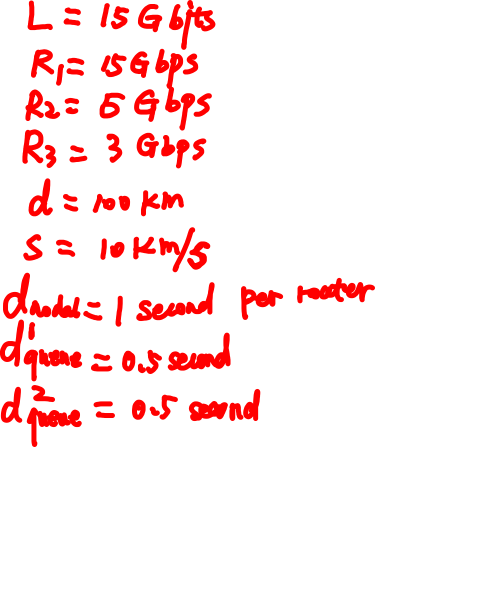 L = 15 Gbits
R1 = 15 Gbps
R2 = 5 Gbps
R3 = 3 Gbps
d = 100 km
s = 10 km/s
dnodal = 1 second per router
d1queue = 0.5 second
d2queue = 0.5 second